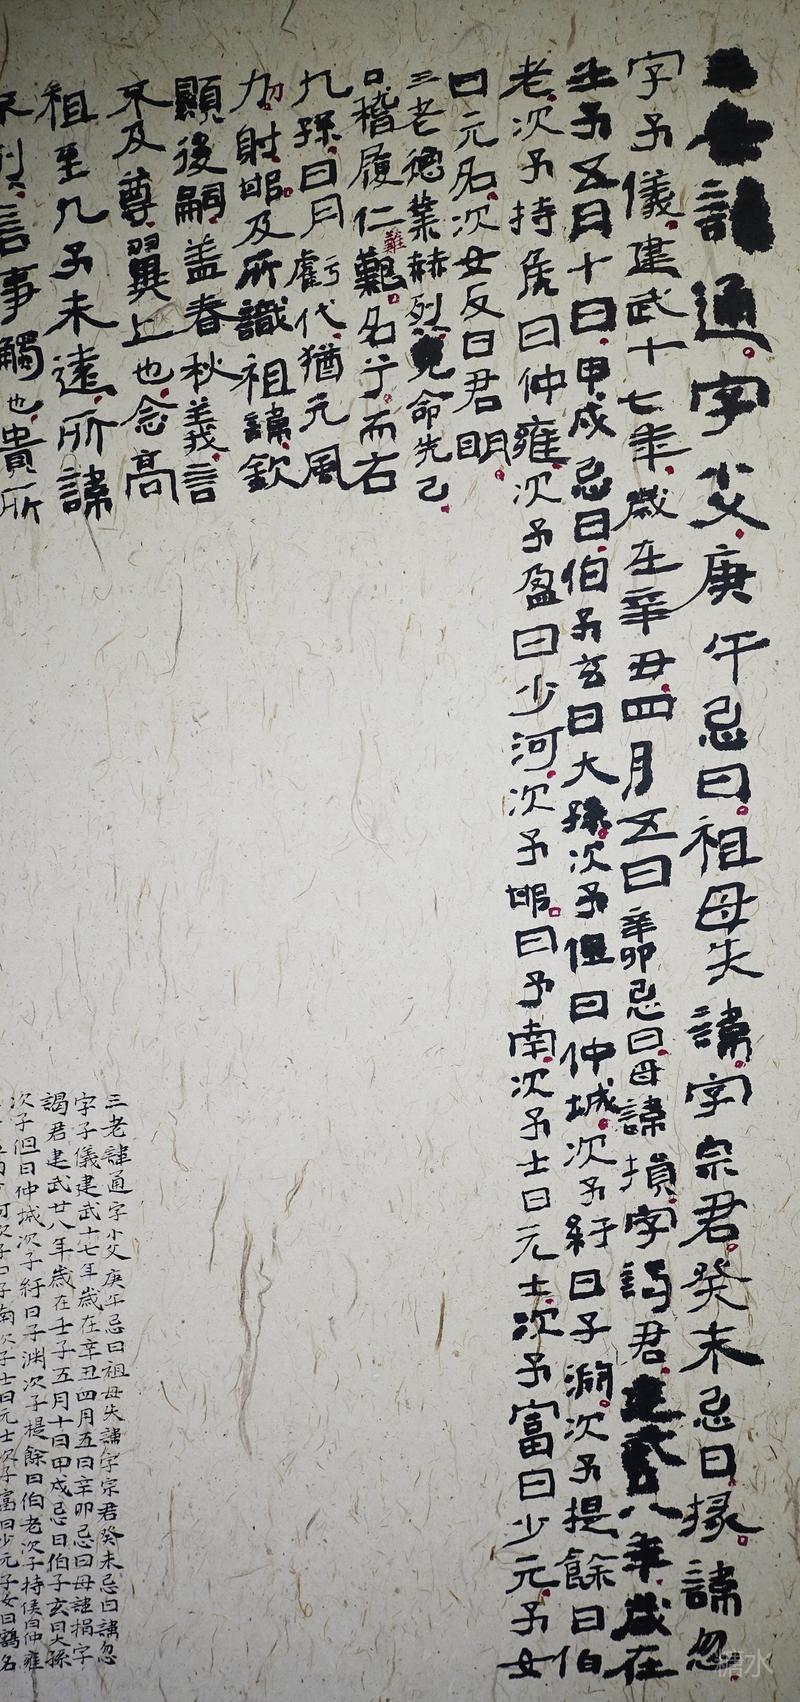 三老諱通字小父庚午忌日祖母失諱字宗君癸未忌日掾諱忽
字子儀建武十七年歲在辛丑四月五日辛卯忌日母諱捐字謁君建武廿八年歲在
壬子五月十日甲戌忌日伯子玄曰大孫次子但曰仲城次子紆曰子淵次子提餘曰伯
老次子持侯曰仲雍次子盈曰少河次子邯曰子南次子士曰元士次子富曰少元子女
曰元名次女反曰君明
三老德業赫列克命先己
口稽履仁難名兮而右
九孫日月虧代猶元風
力射邯及所識祖諱欽
顯後嗣盖春秋義言
不及尊翼上也念高
祖至九子未遠所諱
不列言事觸也貴所
三老諱通字小父庚午忌日祖母失諱字宗君癸未忌日諱忽
字子儀建武十七年歲在辛丑四月五日辛卯忌日母諱捐字
謁君建武廿八年歲在壬子五月十日甲戌忌日伯子玄曰大孫
次子但曰仲城次子紆曰子淵次子提餘曰伯老次子持侯曰仲雍
次子曰子南次子士曰元士次子富曰少元子女曰名
糖水